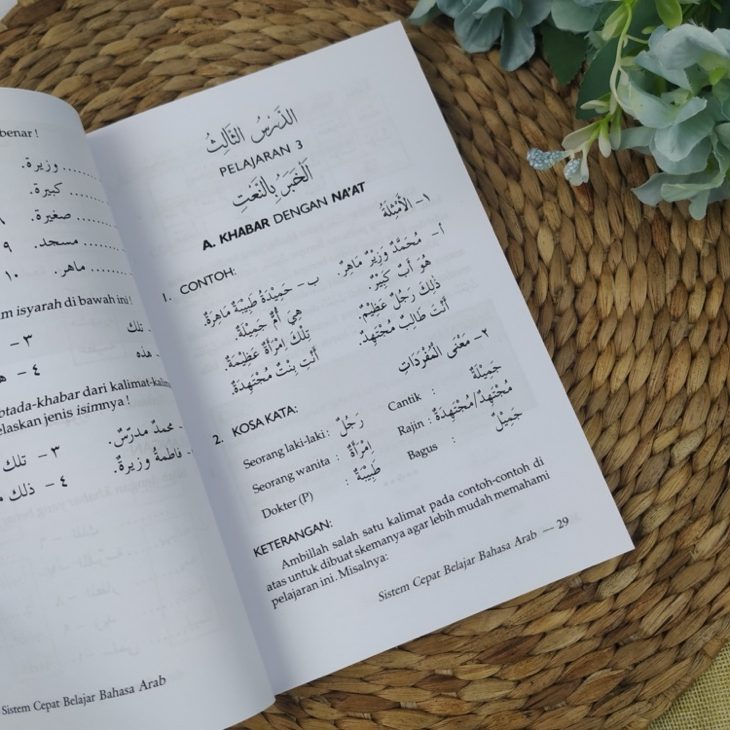 benar !
وزيرة. ........
كبيرة. ........
صغيرة. ........ ٨
مسجد. ........ ٩
ماهر. ........ ١٠
m isyarah di bawah ini !
تلك ٣ -
هذه ٤ -
btada-khabar dari kalimat-kalim
elaskan jenis isimnya !
محمدٌ مدرسٌ. ٣ - تلك
فاطمةُ وزيرةٌ. ٤ - ذلك
Sistem Cepat Belajar Bahasa Arab
الدَّرْسُ الثَّالِثُ
PELAJARAN 3
اَلْخَبَرُ بِالنَّعْتِ
A. KHABAR DENGAN NA'AT
١- اَلْأَمْثِلَةُ
1. CONTOH:
أ - مُحَمَّدٌ وَزِيْرٌ مَاهِرٌ. ب - حَمِيْدَةُ طَبِيْبَةٌ مَاهِرَةٌ.
هُوَ أَبٌ كَبِيْرٌ. هِيَ أُمٌّ جَمِيْلَةٌ.
ذَلِكَ رَجُلٌ عَظِيْمٌ. تِلْكَ امْرَأَةٌ عَظِيْمَةٌ.
أَنْتَ طَالِبٌ مُجْتَهِدٌ. أَنْتِ بِنْتٌ مُجْتَهِدَةٌ.
٢- مَعْنَى الْمُفْرَدَاتِ
2. KOSA KATA:
Seorang laki-laki : رَجُلٌ Cantik : جَمِيْلَةٌ
Seorang wanita : اِمْرَأَةٌ Rajin : مُجْتَهِدٌ/مُجْتَهِدَةٌ
Dokter (P) : طَبِيْبَةٌ Bagus : جَمِيْلٌ
KETERANGAN:
Ambillah salah satu kalimat pada contoh-contoh di
atas untuk dibuat skemanya agar lebih mudah memahami
pelajaran ini. Misalnya:
Sistem Cepat Belajar Bahasa Arab — 29